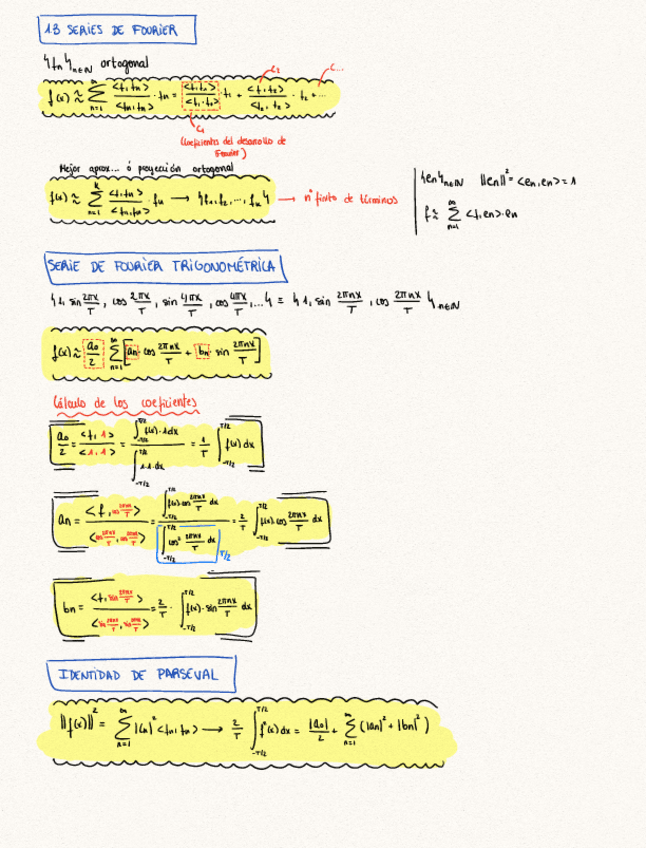 1.3 SERIES DE FOURIER
{fn}n∈N ortogonal
f(x) ≈ ∑_{n=1}^{∞} <f,fn>/<fn,fn> · fn = <f,f1>/<f1,f1> · f1 + <f,f2>/<f2,f2> · f2 + ...
C2
C...
C1
(Coeficientes del desarrollo de Fourier)
Mejor aprox... ó proyección ortogonal
f(x) ≈ ∑_{n=1}^{k} <f,fn>/<fn,fn> · fn → {f1, f2, ..., fk} → nº finito de términos
{en}n∈N ||en||² = <en,en> = 1
f ≈ ∑_{n=1}^{∞} <f,en>·en
SERIE DE FOURIER TRIGONOMÉTRICA
{1, sin 2πx/T, cos 2πx/T, sin 4πx/T, cos 4πx/T, ...} = {1, sin 2πnx/T, cos 2πnx/T}n∈N
f(x) ≈ a0/2 ∑_{n=1}^{∞} [an · cos 2πnx/T + bn · sin 2πnx/T]
Cálculo de los coeficientes
a0/2 = <f,1>/<1,1> = ∫_{-T/2}^{T/2} f(x)·1dx / ∫_{-T/2}^{T/2} 1·1·dx = 1/T ∫_{-T/2}^{T/2} f(x)dx
an = <f, cos 2πnx/T>/<cos 2πnx/T, cos 2πnx/T> = ∫_{-T/2}^{T/2} f(x)·cos 2πnx/T dx / ∫_{-T/2}^{T/2} cos² 2πnx/T dx = 2/T ∫_{-T/2}^{T/2} f(x)·cos 2πnx/T dx
T/2
bn = <f, sin 2πnx/T>/<sin 2πnx/T, sin 2πnx/T> = 2/T · ∫_{-T/2}^{T/2} f(x)·sin 2πnx/T dx
IDENTIDAD DE PARSEVAL
||f(x)||² = ∑_{n=1}^{∞} |Cn|² <fn,fn> → 2/T ∫_{-T/2}^{T/2} f²(x)dx = |a0|²/2 + ∑_{n=1}^{∞} (|an|² + |bn|²)